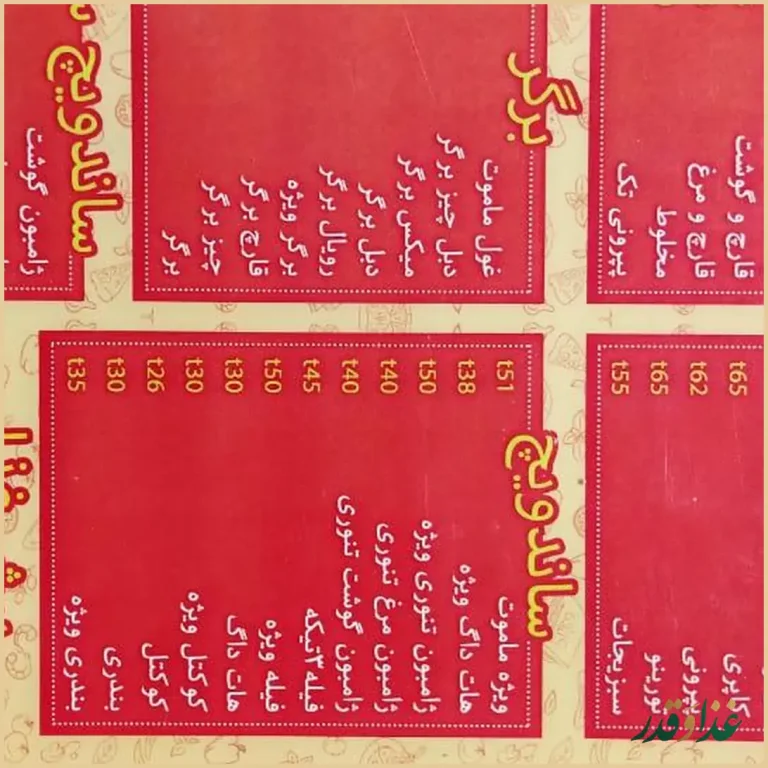 قارچ و گوشت
قارچ و مرغ
مخلوط
پپرونی تک
برگر
غول ماموت
دبل چیز برگر
میکس برگر
دبل برگر
رویال برگر
برگر ویژه
قارچ برگر
چیز برگر
برگر
ساندویچ
ژامبون گوشت
کاپری t65
پپرونی t62
t65
سبزیجات t55
ساندویچ
ویژه ماموت t51
هات داگ ویژه t38
ژامبون تنوری ویژه t50
ژامبون مرغ تنوری t40
ژامبون گوشت تنوری t40
فیله ۳تیکه t45
فیله ویژه t50
هات داگ t30
کوکتل ویژه t30
کوکتل t26
بندری t30
بندری ویژه t35
غذا و قدر